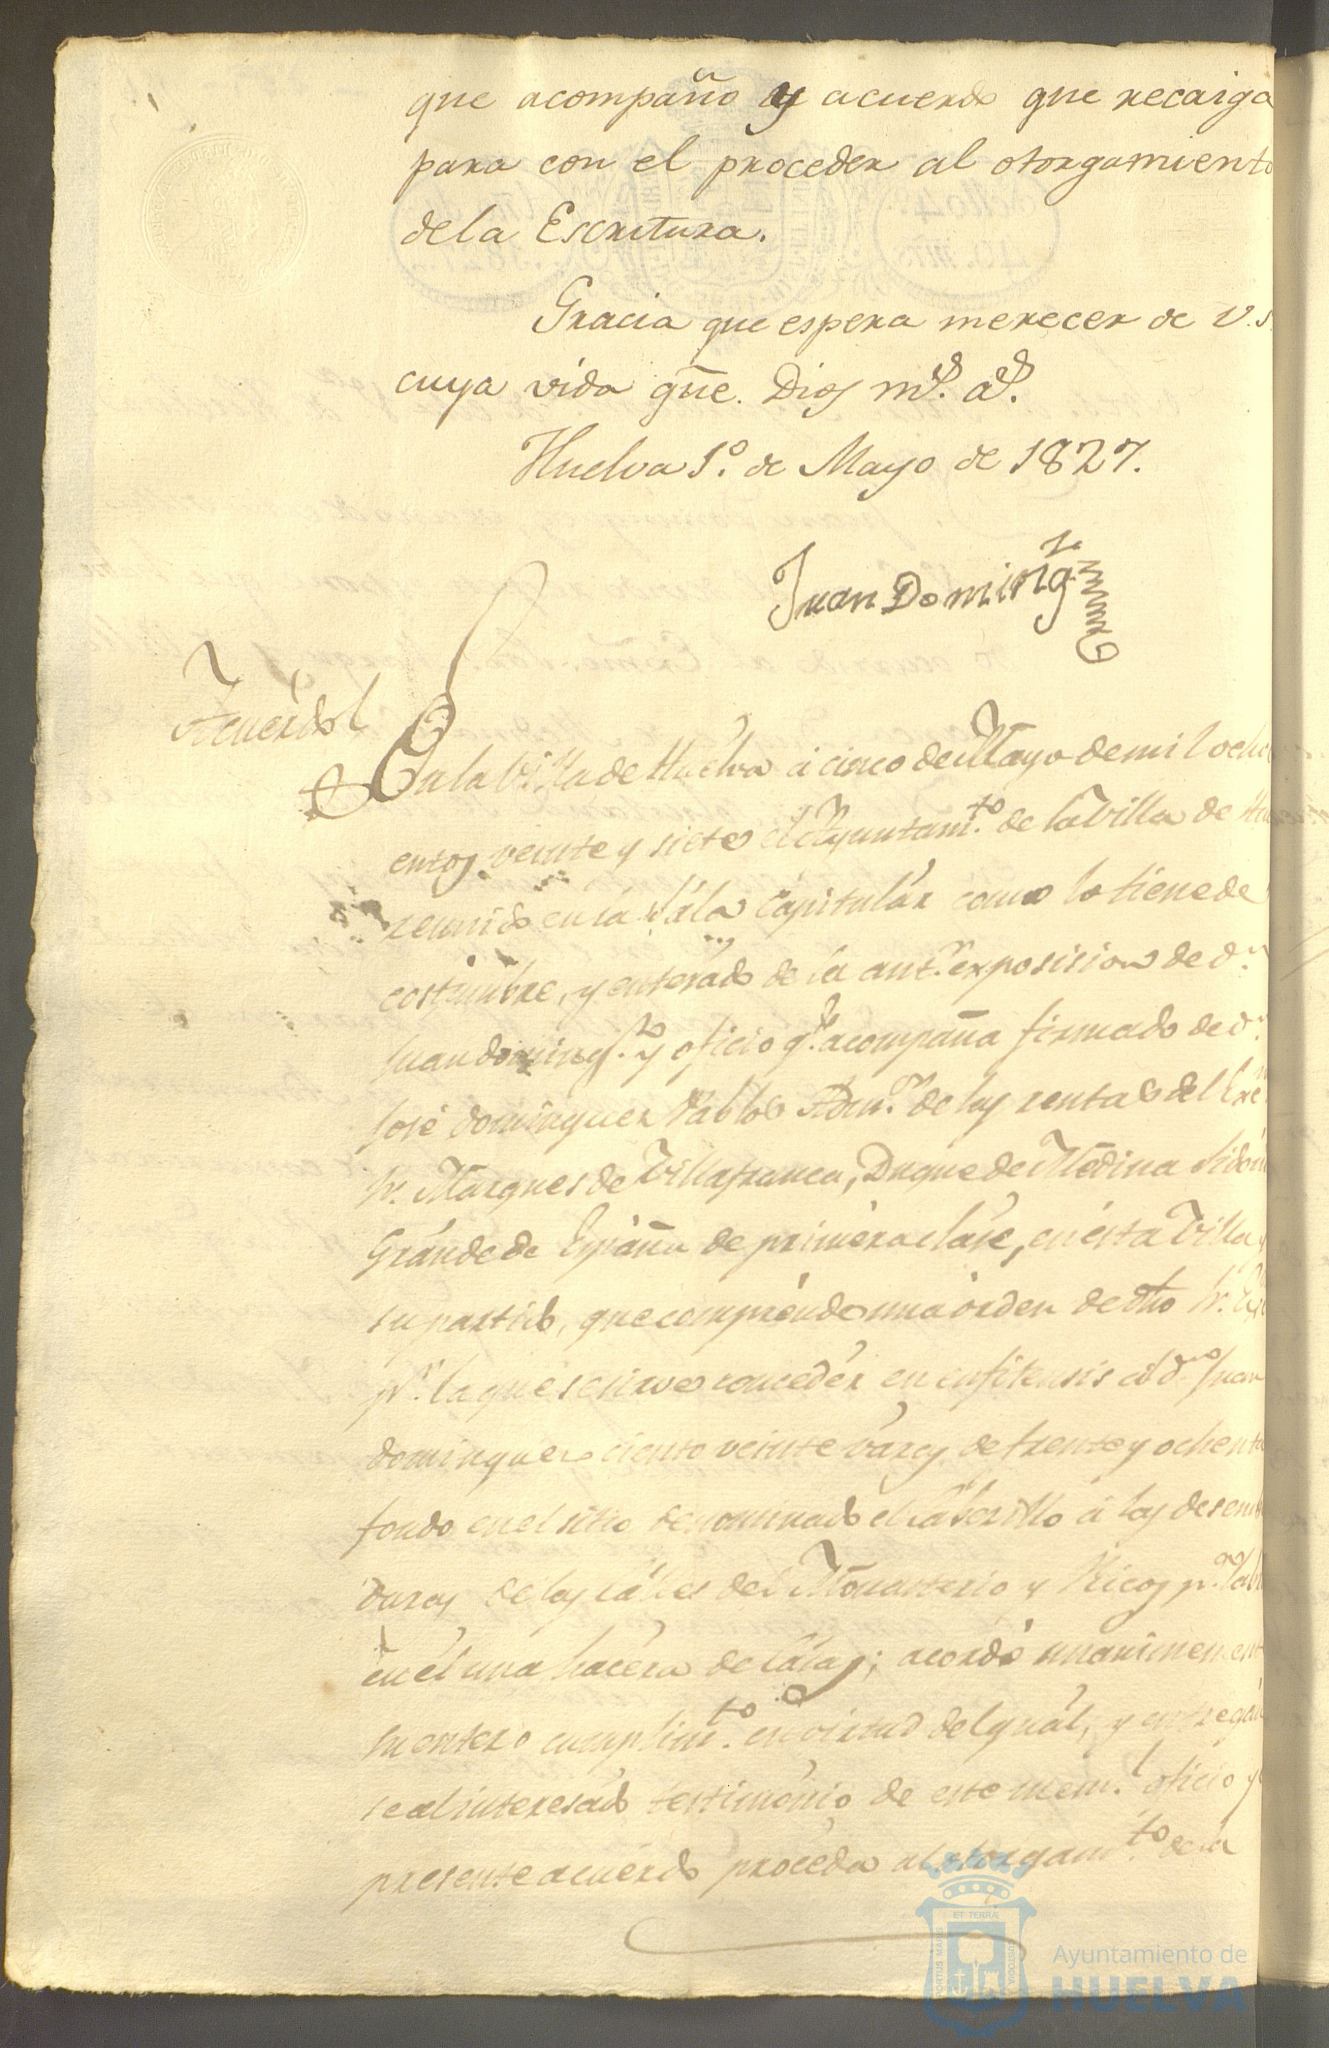 que acompaño y acuerdo que recaiga
para con el proceder al otorgamiento
de la Escritura.
Gracia que espera merecer de V.S.
cuya vida gũe. Dios m.s a.s
Huelva 1.º de Mayo de 1827.
Juan Doming.z
Acuerdo
En la Villa de Huelva á cinco de Mayo de mil ochoci
entos veinte y siete el Ayuntam.to de la Villa de
reunido en la Sala Capitular como lo tiene de
costumbre, y enterado de la ant.r exposicion de d.n
Juan doming.z y oficio q.e acompaña firmado de d.n
José dominguez Pablos Adm.or de las rentas del
Sr. Marques de Villafranca, Duque de Medina Sidonia
Grande de España de primera clase, en esta Villa y
su partido, que comprende una orden de dho Sr.
p.r la que se sirve conceder en enfiteusis al d.n Juan
dominguez ciento veinte varas de frente y ochenta
fondo en el sitio denominado el Cabezillo á las
varas de las calles del Monasterio y Ricos p.a
en él una hacera de Casas; acordó unanimement
su entero cumplim.to en virtud del qual, y entregan
se al interesado testimonio de este mem.l oficio y
presente acuerdo proceda al otorgam.to de la
PORTUS MARIS ET TERRÆ CUSTODIA
Ayuntamiento de
HUELVA